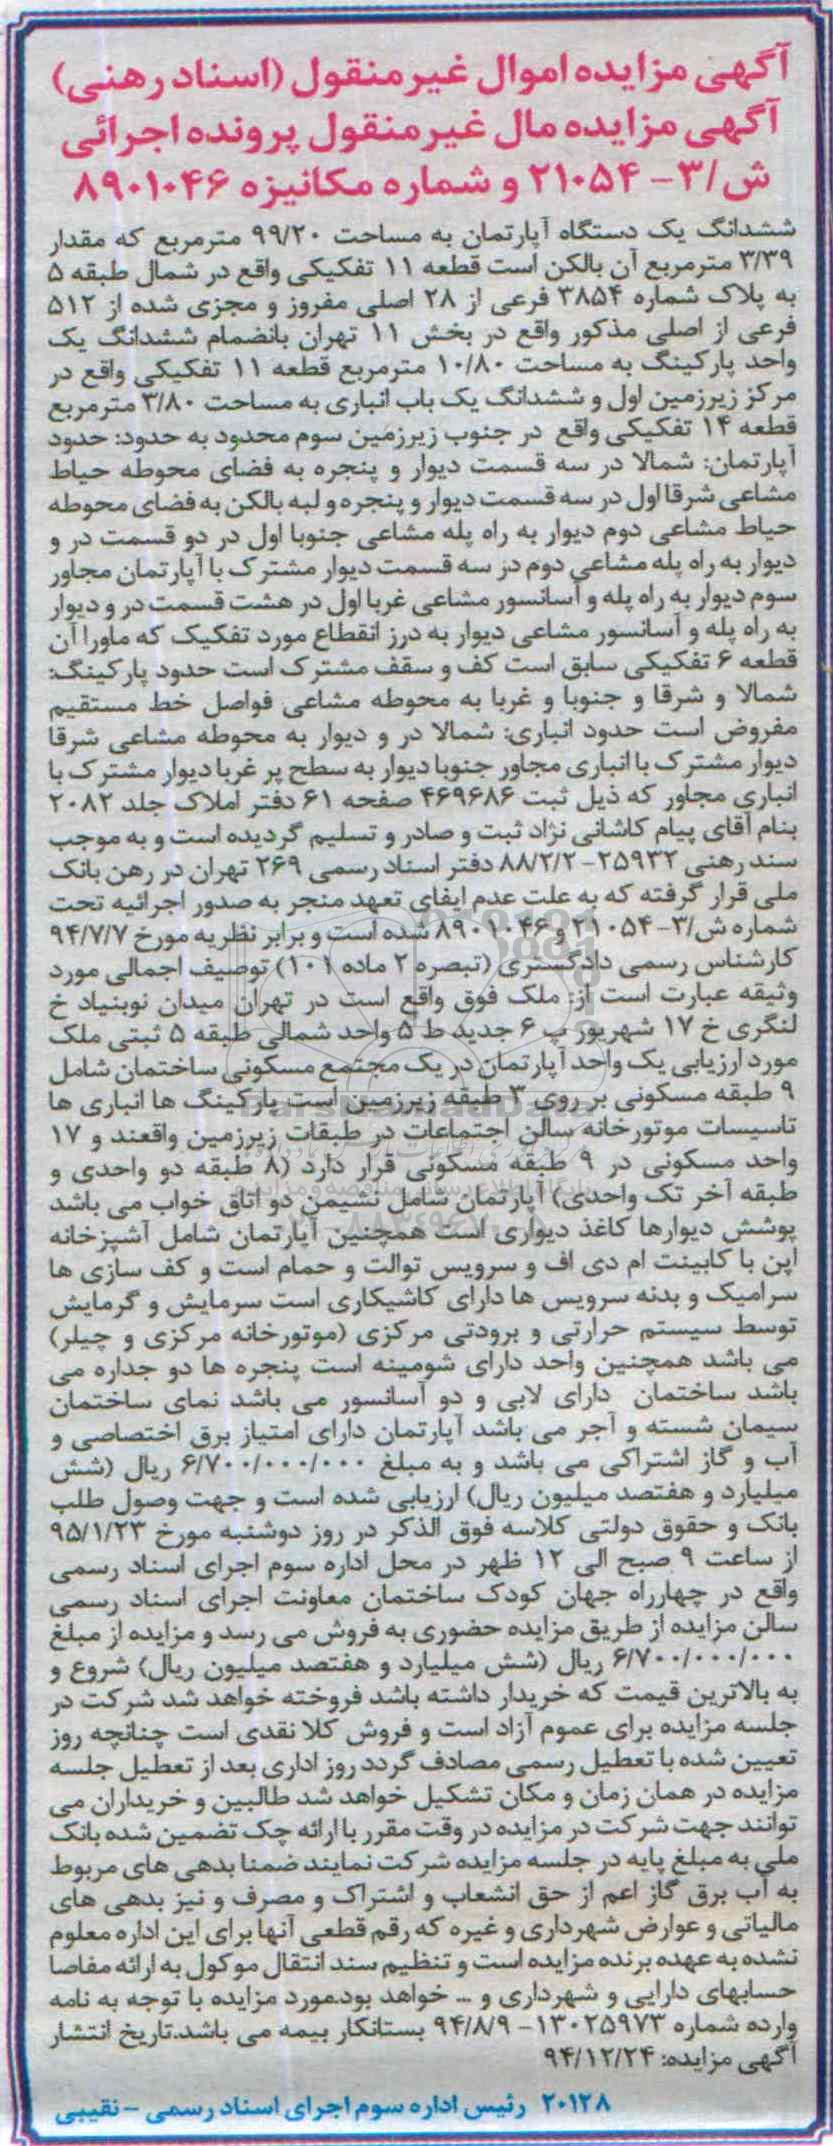 آگهی مزایده اموال غیرمنقول (اسناد رهنی)
آگهی مزایده مال غیرمنقول پرونده اجرائی
ش/۳- ۲۱۰۵۴ و شماره مکانیزه ۸۹۰۱۰۴۶
ششدانگ یک دستگاه آپارتمان به مساحت ۹۹/۲۰ مترمربع که مقدار
۳/۳۹ مترمربع آن بالکن است قطعه ۱۱ تفکیکی واقع در شمال طبقه ۵
به پلاک شماره ۳۸۵۴ فرعی از ۲۸ اصلی مفروز و مجزی شده از ۵۱۲
فرعی از اصلی مذکور واقع در بخش ۱۱ تهران بانضمام ششدانگ یک
واحد پارکینگ به مساحت ۱۰/۸۰ مترمربع قطعه ۱۱ تفکیکی واقع در
مرکز زیرزمین اول و ششدانگ یک باب انباری به مساحت ۳/۸۰ مترمربع
قطعه ۱۴ تفکیکی واقع در جنوب زیرزمین سوم محدود به حدود: حدود
آپارتمان: شمالا در سه قسمت دیوار و پنجره به فضای محوطه حیاط
مشاعی شرقا اول در سه قسمت دیوار و پنجره و لبه بالکن به فضای محوطه
حیاط مشاعی دوم دیوار به راه پله مشاعی جنوبا اول در دو قسمت در و
دیوار به راه پله مشاعی دوم در سه قسمت دیوار مشترک با آپارتمان مجاور
سوم دیوار به راه پله و آسانسور مشاعی غربا اول در هشت قسمت در و دیوار
به راه پله و آسانسور مشاعی دیوار به درز انقطاع مورد تفکیک که ماورا آن
قطعه ۶ تفکیکی سابق است کف و سقف مشترک است حدود پارکینگ:
شمالا و شرقا و جنوبا و غربا به محوطه مشاعی فواصل خط مستقیم
مفروض است حدود انباری: شمالا در و دیوار به محوطه مشاعی شرقا
دیوار مشترک با انباری مجاور جنوبا دیوار به سطح پر غربا دیوار مشترک با
انباری مجاور که ذیل ثبت ۴۶۹۶۸۶ صفحه ۶۱ دفتر املاک جلد ۲۰۸۲
بنام آقای پیام کاشانی نژاد ثبت و صادر و تسلیم گردیده است و به موجب
سند رهنی ۲۵۹۳۲- ۸۸/۲/۲ دفتر اسناد رسمی ۲۶۹ تهران در رهن بانک
ملی قرار گرفته که به علت عدم ایفای تعهد منجر به صدور اجرائیه تحت
شماره ش/۳- ۲۱۰۵۴ و ۸۹۰۱۰۴۶ شده است و برابر نظریه مورخ ۹۴/۷/۷
کارشناس رسمی دادگستری (تبصره ۲ ماده ۱۰۱) توصیف اجمالی مورد
وثیقه عبارت است از: ملک فوق واقع است در تهران میدان نوبنیاد خ
لنگری خ ۱۷ شهریور پ ۶ جدید ط ۵ واحد شمالی طبقه ۵ ثبتی ملک
مورد ارزیابی یک واحد آپارتمان در یک مجتمع مسکونی ساختمان شامل
۹ طبقه مسکونی بر روی ۳ طبقه زیرزمین است پارکینگ ها انباری ها
تاسیسات موتورخانه سالن اجتماعات در طبقات زیرزمین واقعند و ۱۷
واحد مسکونی در ۹ طبقه مسکونی قرار دارد (۸ طبقه دو واحدی و
طبقه آخر تک واحدی) آپارتمان شامل نشیمن دو اتاق خواب می باشد
پوشش دیوارها کاغذ دیواری است همچنین آپارتمان شامل آشپزخانه
اپن با کابینت ام دی اف و سرویس توالت و حمام است و کف سازی ها
سرامیک و بدنه سرویس ها دارای کاشیکاری است سرمایش و گرمایش
توسط سیستم حرارتی و برودتی مرکزی (موتورخانه مرکزی و چیلر)
می باشد همچنین واحد دارای شومینه است پنجره ها دو جداره می
باشد ساختمان دارای لابی و دو آسانسور می باشد نمای ساختمان
سیمان شسته و آجر می باشد آپارتمان دارای امتیاز برق اختصاصی و
آب و گاز اشتراکی می باشد و به مبلغ ۶/۷۰۰/۰۰۰/۰۰۰ ریال (شش
میلیارد و هفتصد میلیون ریال) ارزیابی شده است و جهت وصول طلب
بانک و حقوق دولتی کلاسه فوق الذکر در روز دوشنبه مورخ ۹۵/۱/۲۳
از ساعت ۹ صبح الی ۱۲ ظهر در محل اداره سوم اجرای اسناد رسمی
واقع در چهارراه جهان کودک ساختمان معاونت اجرای اسناد رسمی
سالن مزایده از طریق مزایده حضوری به فروش می رسد و مزایده از مبلغ
۶/۷۰۰/۰۰۰/۰۰۰ ریال (شش میلیارد و هفتصد میلیون ریال) شروع و
به بالاترین قیمت که خریدار داشته باشد فروخته خواهد شد شرکت در
جلسه مزایده برای عموم آزاد است و فروش کلا نقدی است چنانچه روز
تعیین شده با تعطیل رسمی مصادف گردد روز اداری بعد از تعطیل جلسه
مزایده در همان زمان و مکان تشکیل خواهد شد طالبین و خریداران می
توانند جهت شرکت در مزایده در وقت مقرر با ارائه چک تضمین شده بانک
ملی به مبلغ پایه در جلسه مزایده شرکت نمایند ضمنا بدهی های مربوط
به آب برق گاز اعم از حق انشعاب و اشتراک و مصرف و نیز بدهی های
مالیاتی و عوارض شهرداری و غیره که رقم قطعی آنها برای این اداره معلوم
نشده به عهده برنده مزایده است و تنظیم سند انتقال موکول به ارائه مفاصا
حسابهای دارایی و شهرداری و ... خواهد بود.مورد مزایده با توجه به نامه
وارده شماره ۱۳۰۲۵۹۷۳- ۹۴/۸/۹ بستانکار بیمه می باشد.تاریخ انتشار
آگهی مزایده: ۹۴/۱۲/۲۴
۲۰۱۲۸ رئیس اداره سوم اجرای اسناد رسمی - نقیبی